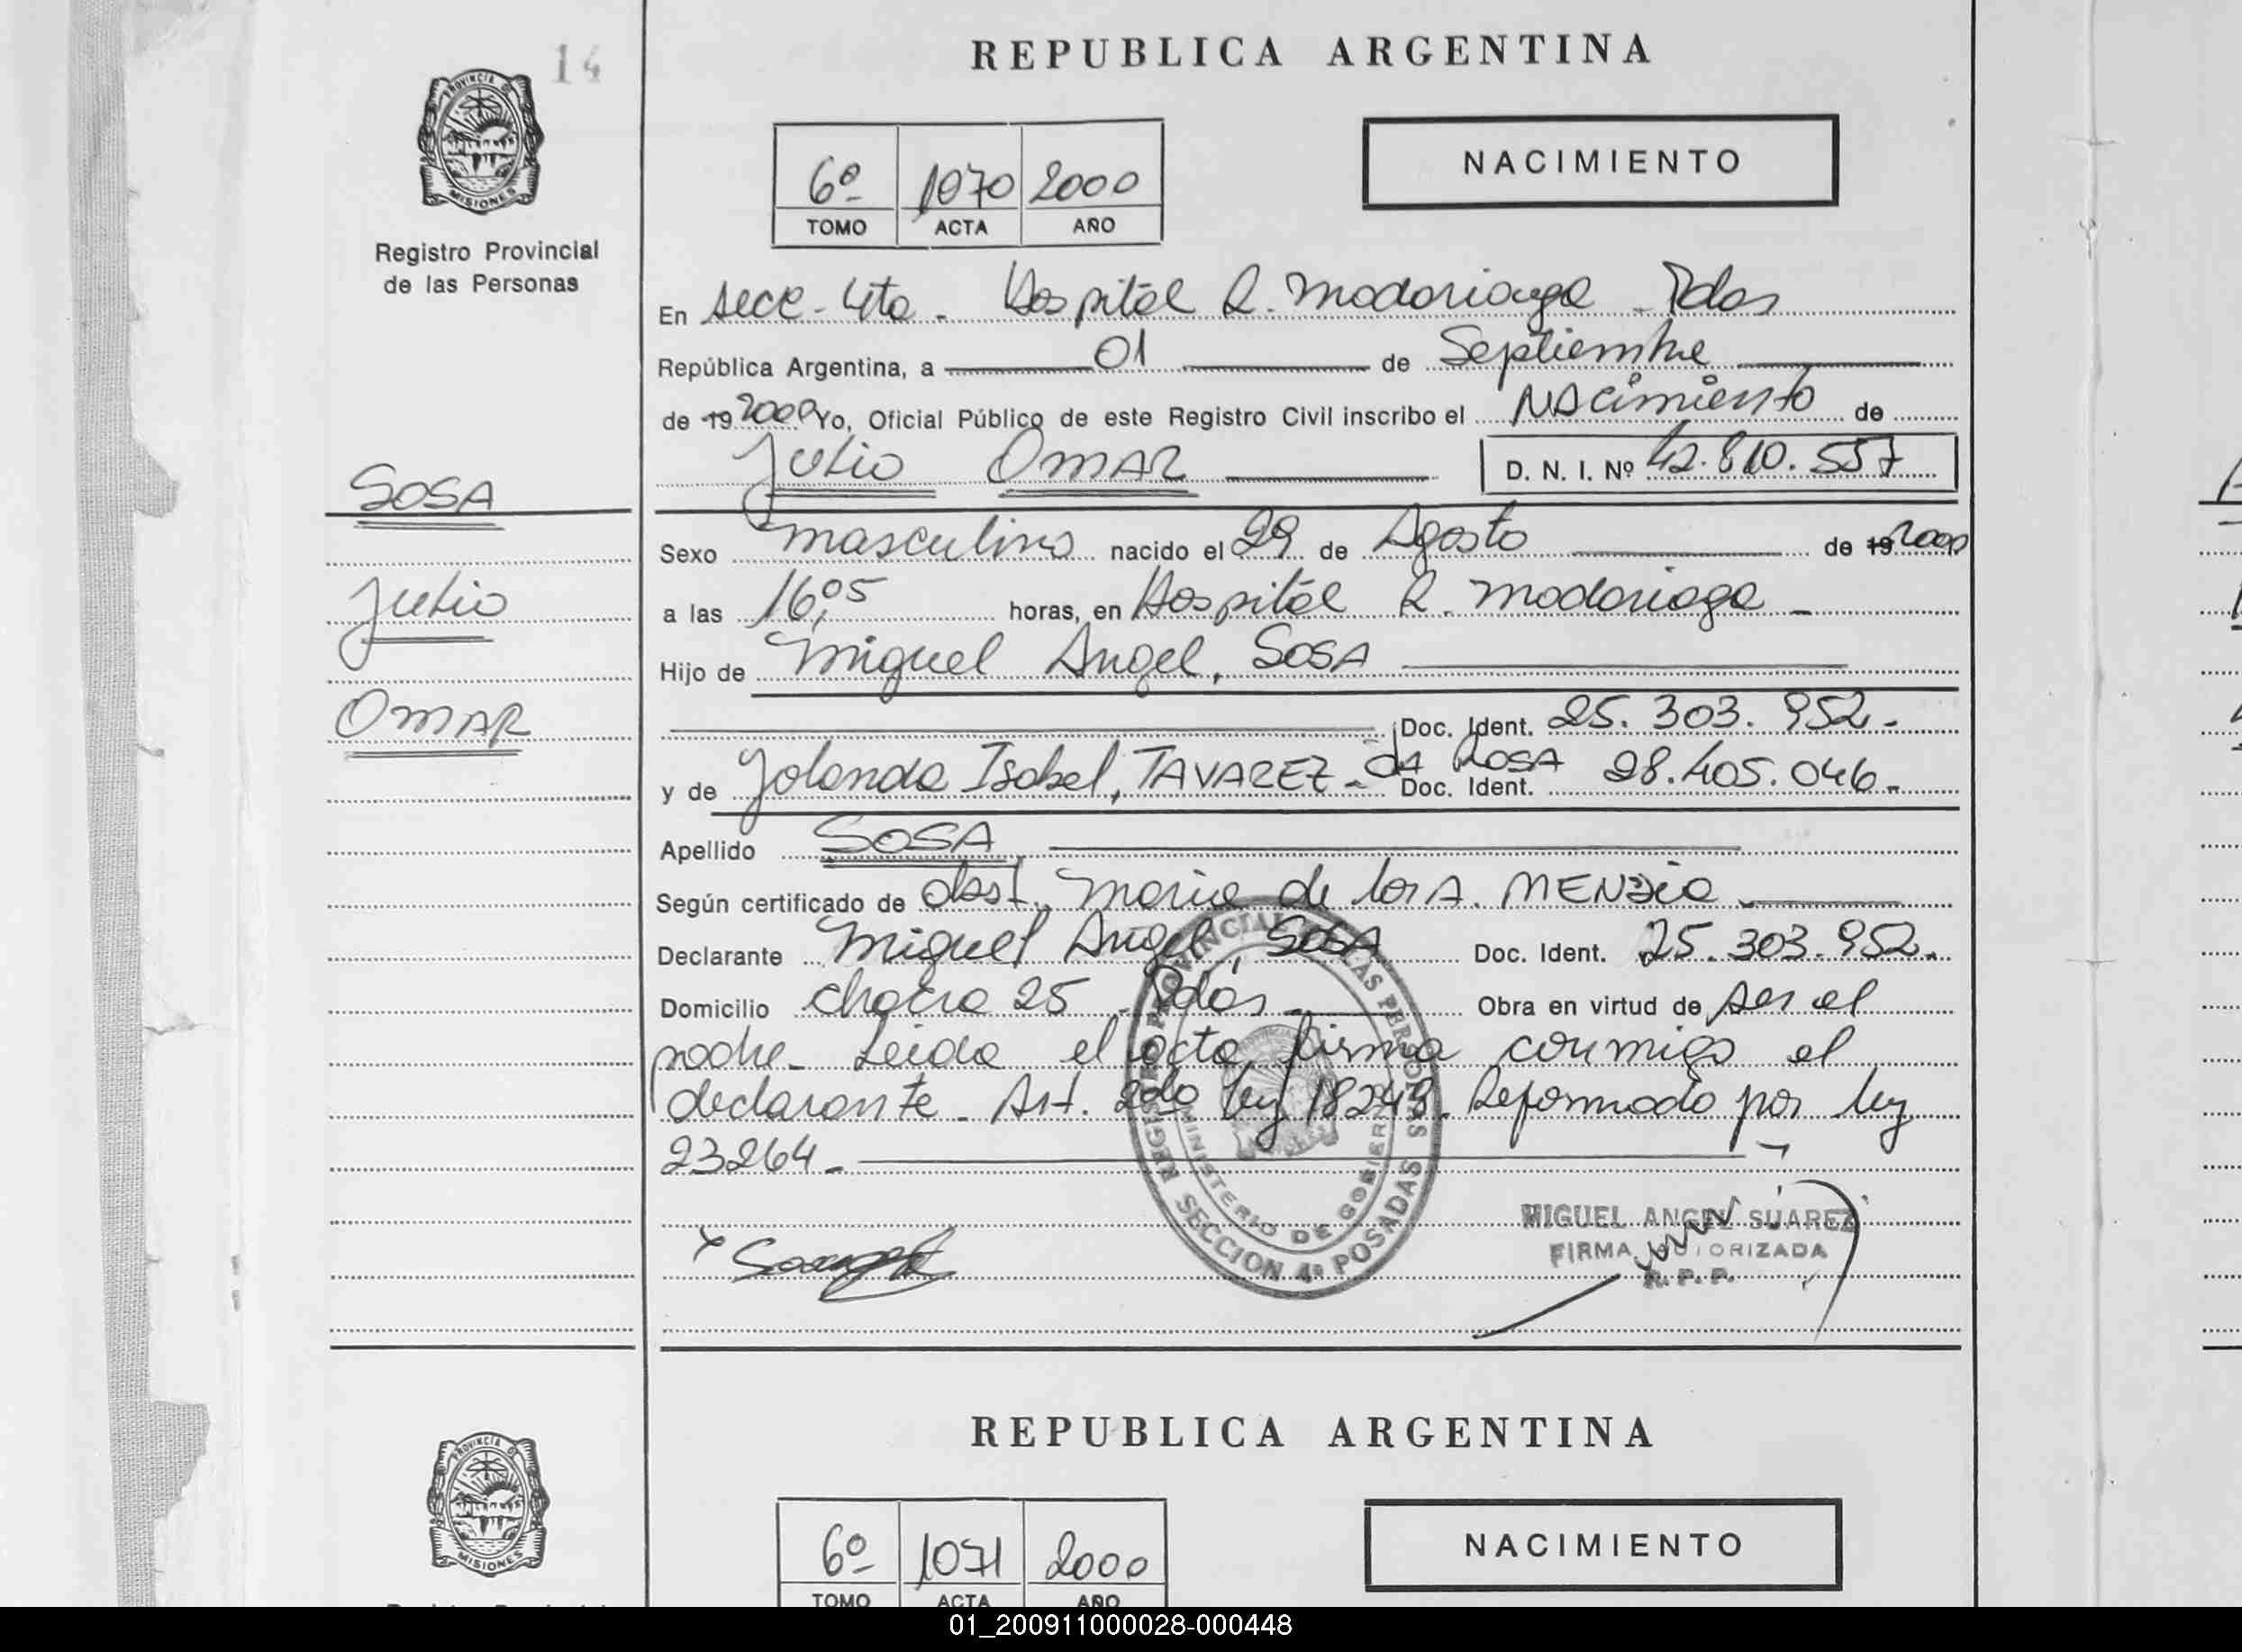 14
PROVINCIA DE
MISIONES
Registro Provincial
de las Personas
SOSA
Julio
OMAR
REPUBLICA ARGENTINA
6º 1070 2000
TOMO ACTA AÑO
NACIMIENTO
En secc. 4ta. Hospital R. Madariaga - Pdas
República Argentina, a 01 de Septiembre
de 19 2000 Yo, Oficial Público de este Registro Civil inscribo el Nacimiento de
Julio OMAR D. N. I. Nº 42.810.557
Sexo masculino nacido el 29 de Agosto de 19 2000
a las 16,05 horas, en Hospital R. Madariaga -
Hijo de Miguel Angel, SOSA
Doc. Ident. 25.303.952.-
y de Yolanda Isabel, TAVAREZ - da ROSA Doc. Ident. 28.405.046.-
Apellido SOSA
Según certificado de obst. Maria de los A. MENDIE
Declarante Miguel Angel SOSA Doc. Ident. 25.303.952.
Domicilio chacra 25 - Pdas. Obra en virtud de ser el
padre. Leida el acta firma conmigo el
declarante. Art. 2do ley 18248. Reformado por ley
23264.-
REGISTRO PROVINCIAL DE LAS PERSONAS
MINISTERIO DE GOBIERNO
SECCION 4ª POSADAS
MIGUEL ANGEL SUAREZ
FIRMA AUTORIZADA
R. P. P.
PROVINCIA DE
MISIONES
REPUBLICA ARGENTINA
6º 1071 2000
TOMO ACTA AÑO
NACIMIENTO
01_200911000028-000448